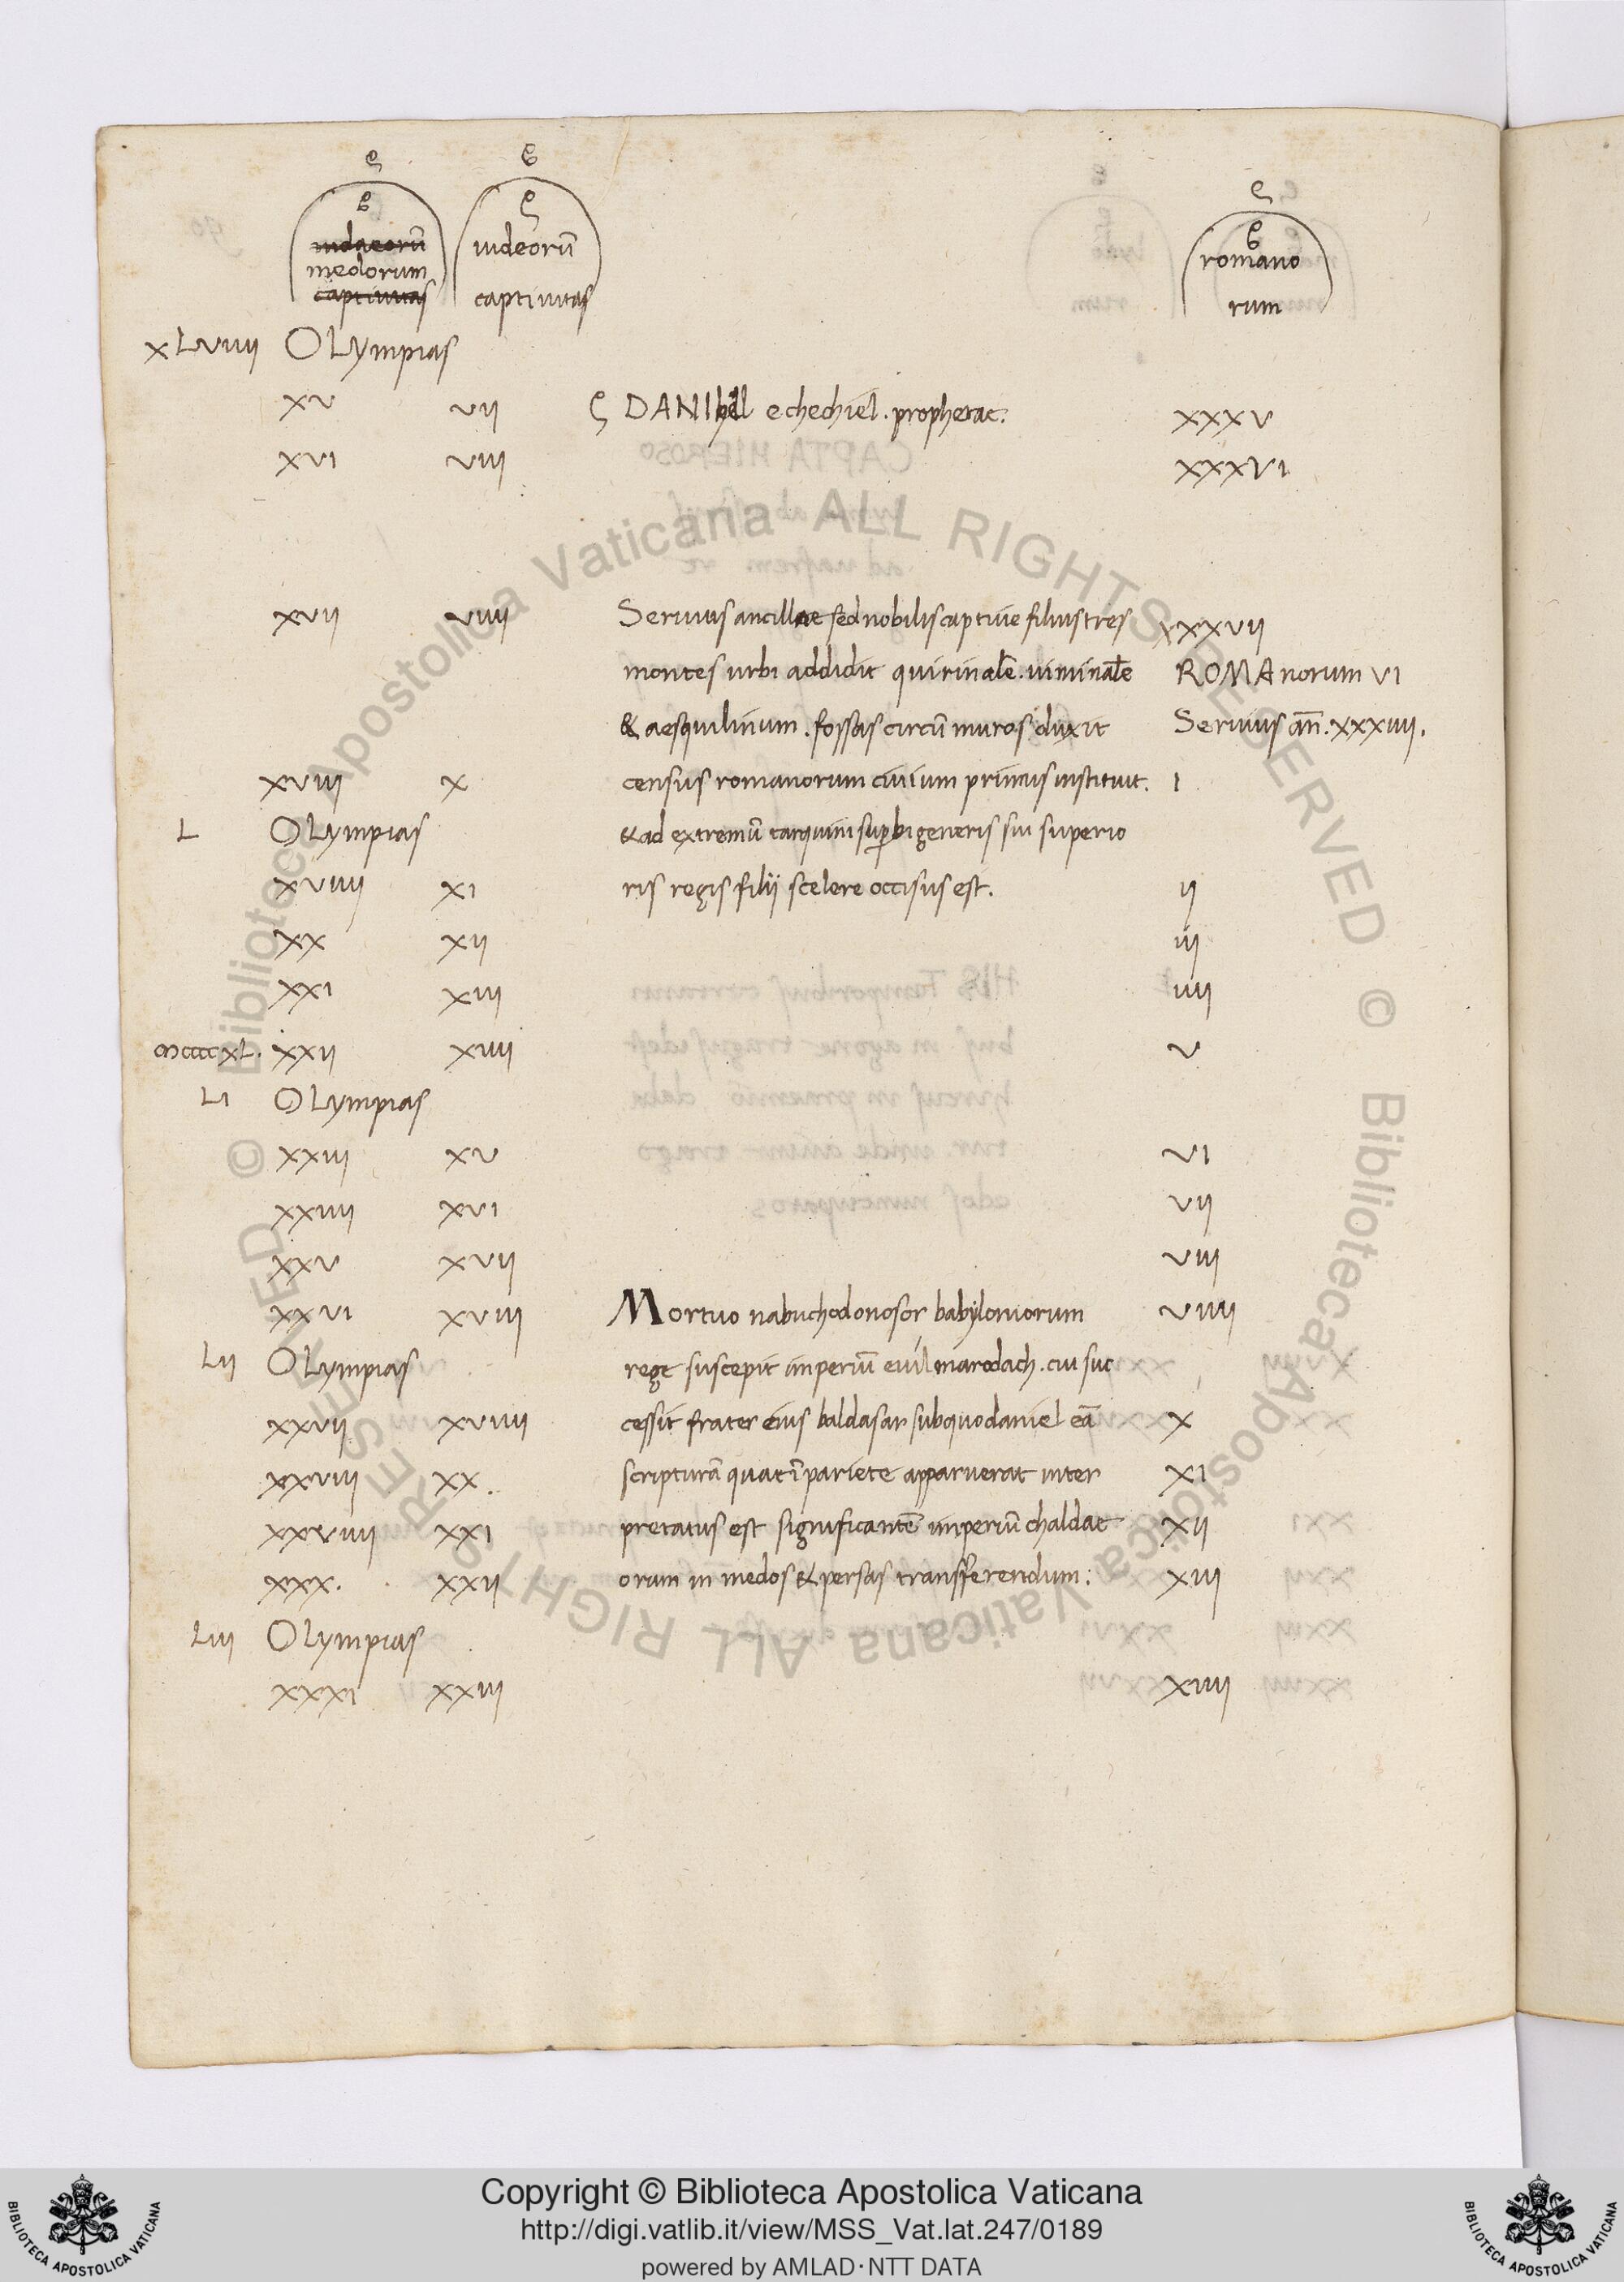 iudaeorū
medorum
captiuitas
iudeorū
captiuitas
romano
rum
XLVIIII OLympias
XV VII DANIhel echechiel. prophetae: XXXV
XVI VIII XXXVI
XVII VIIII Seruius ancillae sed nobilis captiue filius tres XXXVII
montes urbi addidit quirinalē. uiminalē ROMAnorum VI
& aesquilinum. fossas circū muros duxit Seruius an̄. XXXIIII.
XVIII X census romanorum ciuium primus instituit. I
L OLympias & ad extremū tarquini supbi generis sui superio
XVIIII XI ris regis filii scelere occisus est. II
XX XII III
XXI XIII IIII
XXII XIIII V
LI OLympias
XXIII XV VI
XXIIII XVI VII
XXV XVII VIII
XXVI XVIII Mortuo nabuchodonosor babyloniorum VIIII
LII OLympias rege suscepit imperiū euilmarodach. cui suc
XXVII XVIIII cessit frater eius baldasar sub quo daniel eā X
XXVIII XX. scripturā quae ī pariete apparuerat inter XI
XXVIIII XXI pretatus est significantē imperiū chaldae XII
XXX. XXII orum in medos & persas transferendum: XIII
LIII OLympias
XXXI XXIII XIIII
Biblioteca Apostolica Vaticana ALL RIGHTS RESERVED ©
Biblioteca Apostolica Vaticana ALL RIGHTS RESERVED ©
Copyright © Biblioteca Apostolica Vaticana
http://digi.vatlib.it/view/MSS_Vat.lat.247/0189
powered by AMLAD·NTT DATA
BIBLIOTECA APOSTOLICA VATICANA
BIBLIOTECA APOSTOLICA VATICANA